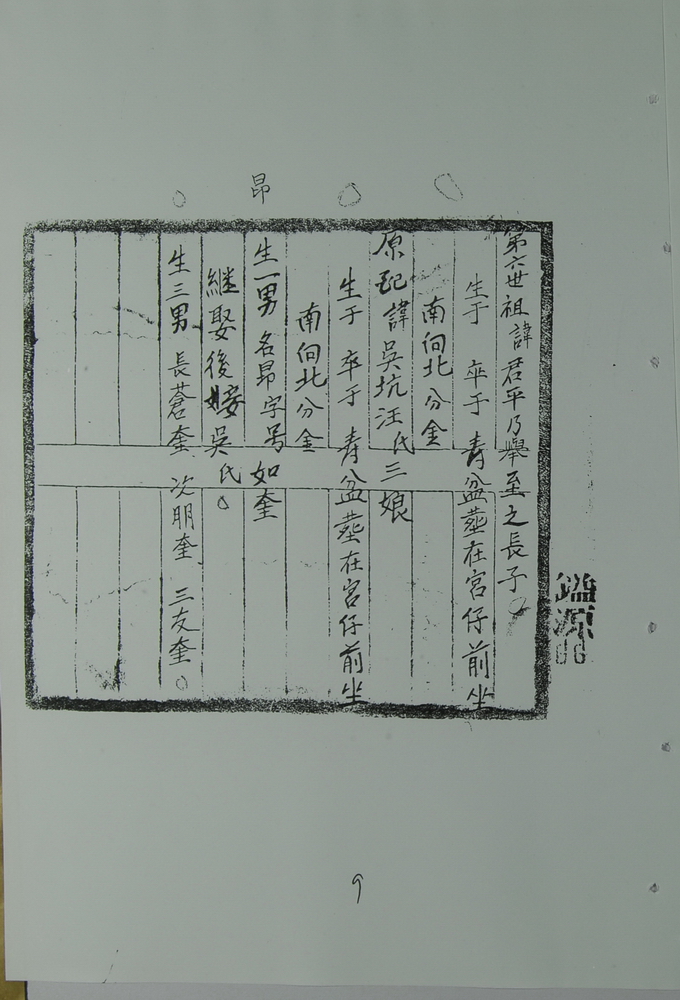 昂
第六世祖諱君平乃舉至之長子
生于 卒于 青盆塟在宮仔前坐
南向北分金
原配諱吳坑汪氏三娘
生于 卒于 青盆塟在宮仔前坐
南向北分金
生一男 名昂字号如奎
継娶後妾吳氏
生三男 長蒼奎 次朋奎 三友奎
鎰源
9